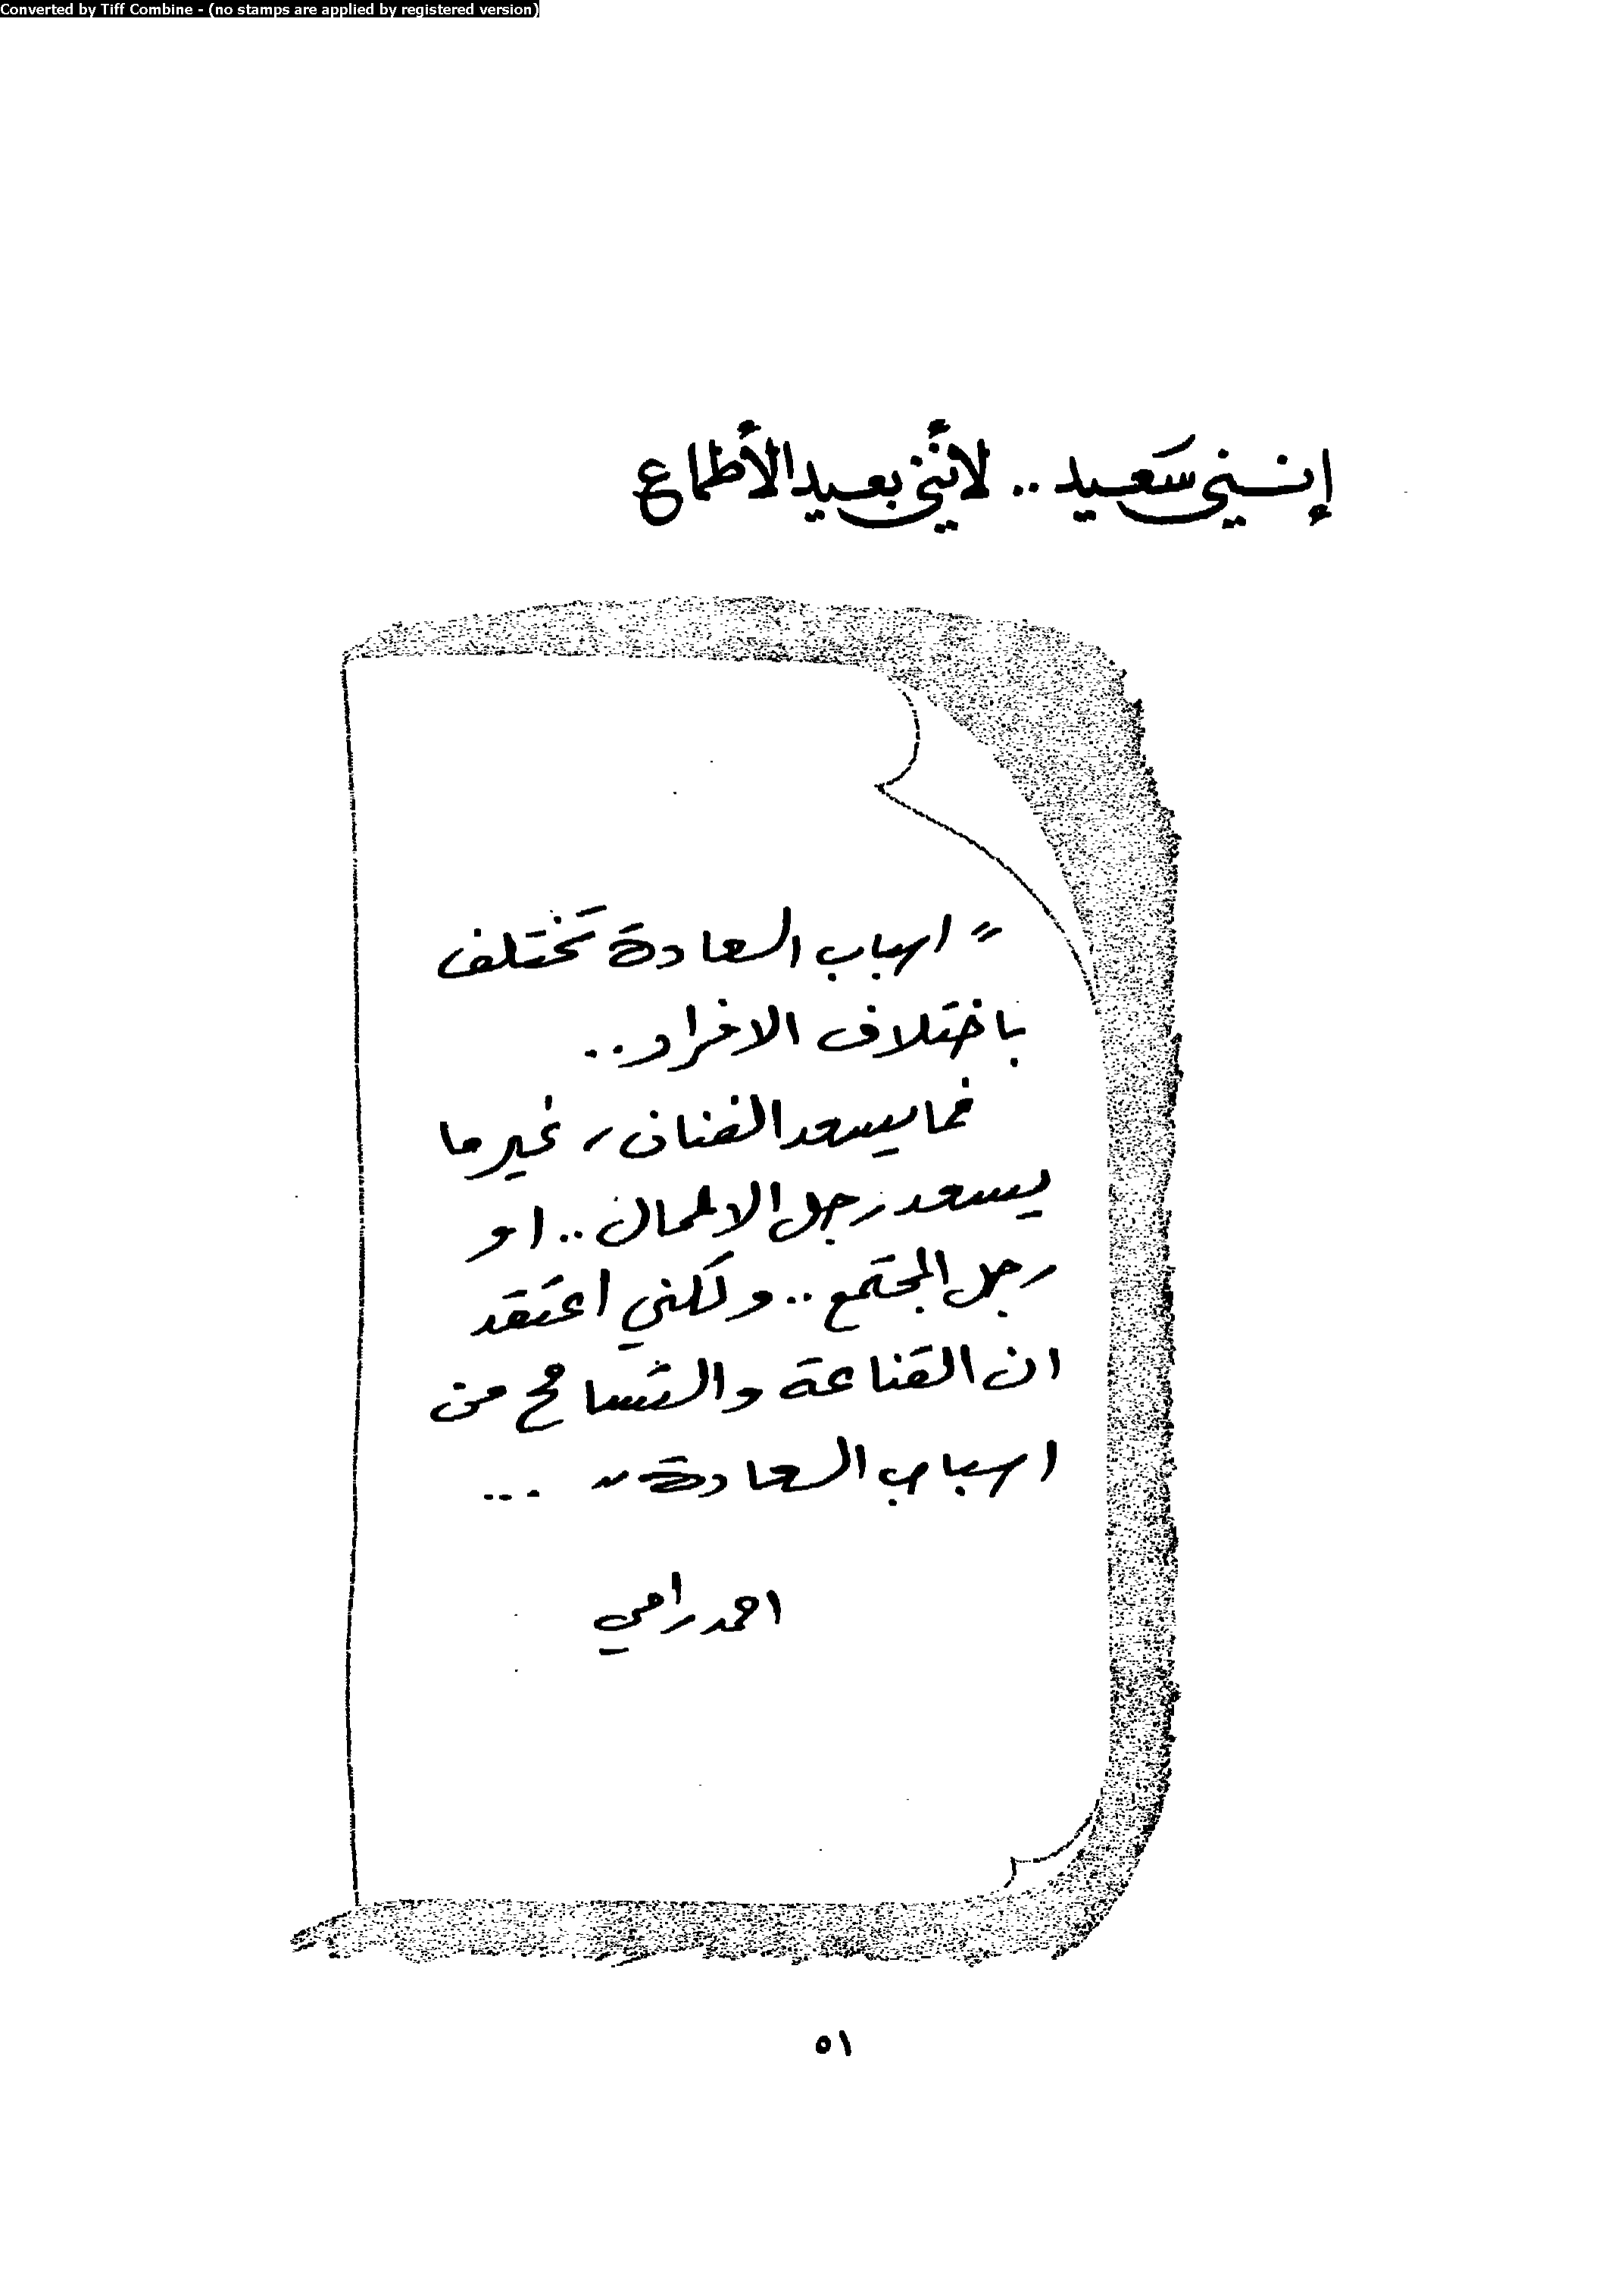 Converted by Tiff Combine - (no stamps are applied by registered version)
إنني سَعيد .. لأنني بعيد الأطماع
" اسباب السعادة تختلف
باختلاف الافراد ..
فما يسعد الفنان ، غير ما
يسعد رجل الاعمال .. او
رجل المجتمع .. ولكني اعتقد
ان القناعة والتسامح من
اسباب السعادة " ...
احمد رامي
٥١